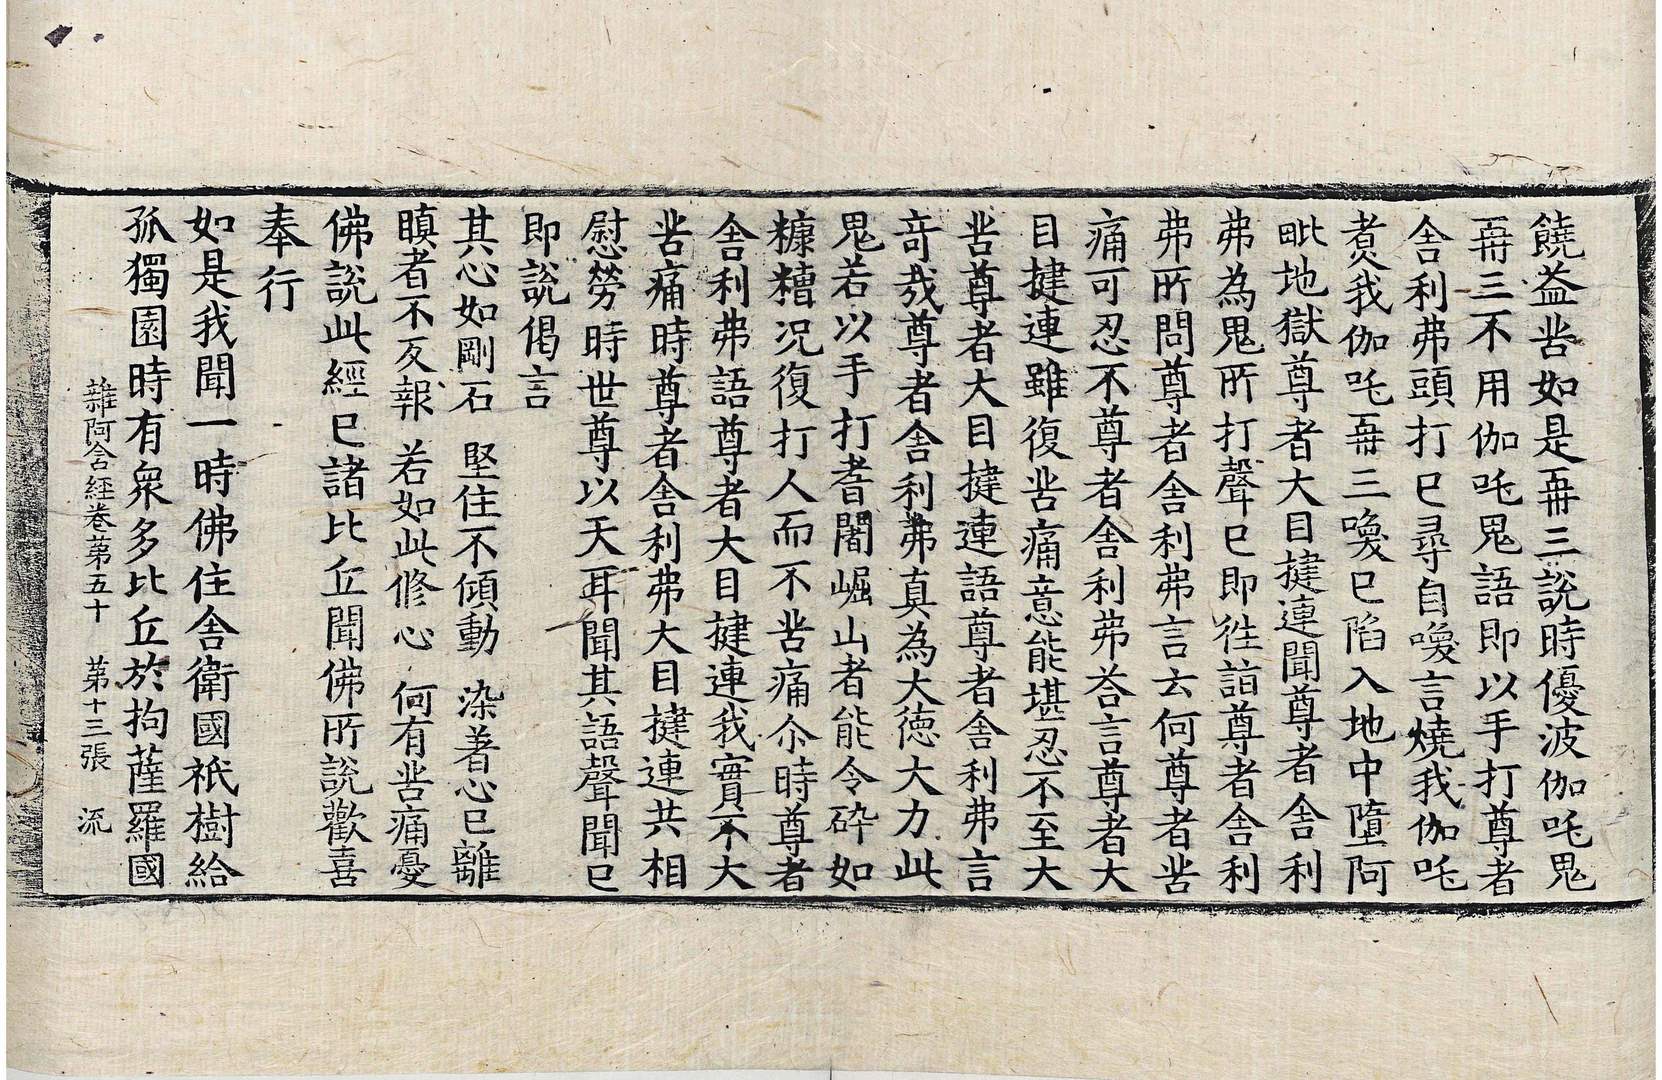 饒益苦如是再三說時優波伽吒鬼
再三不用伽吒鬼語即以手打尊者
舍利弗頭打已尋自喚言燒我伽吒
煑我伽吒再三喚已陷入地中墮阿
毗地獄尊者大目揵連聞尊者舍利
弗為鬼所打聲已即往詣尊者舍利
弗所問尊者舍利弗言云何尊者苦
痛可忍不尊者舍利弗荅言尊者大
目揵連雖復苦痛意能堪忍不至大
苦尊者大目揵連語尊者舍利弗言
奇哉尊者舍利弗真為大德大力此
鬼若以手打耆闍崛山者能令碎如
糠糟况復打人而不苦痛尒時尊者
舍利弗語尊者大目揵連我實不大
苦痛時尊者舍利弗大目揵連共相
慰勞時世尊以天耳聞其語聲聞已
即說偈言
其心如剛石 堅住不傾動 染著心已離
瞋者不反報 若如此修心 何有苦痛憂
佛說此經已諸比丘聞佛所說歡喜
奉行
如是我聞一時佛住舍衛國祇樹給
孤獨園時有衆多比丘於拘薩羅國
雜阿含経卷第五十 第十三張 流